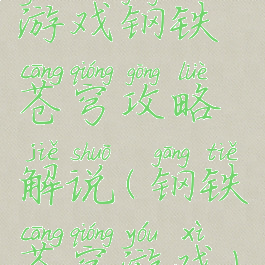 游戏钢铁
cāng qióng gōng lüè
苍穹攻略
jiě shuō gāng tiě
解说(钢铁
cāng qióng yóu xì
苍穹游戏)